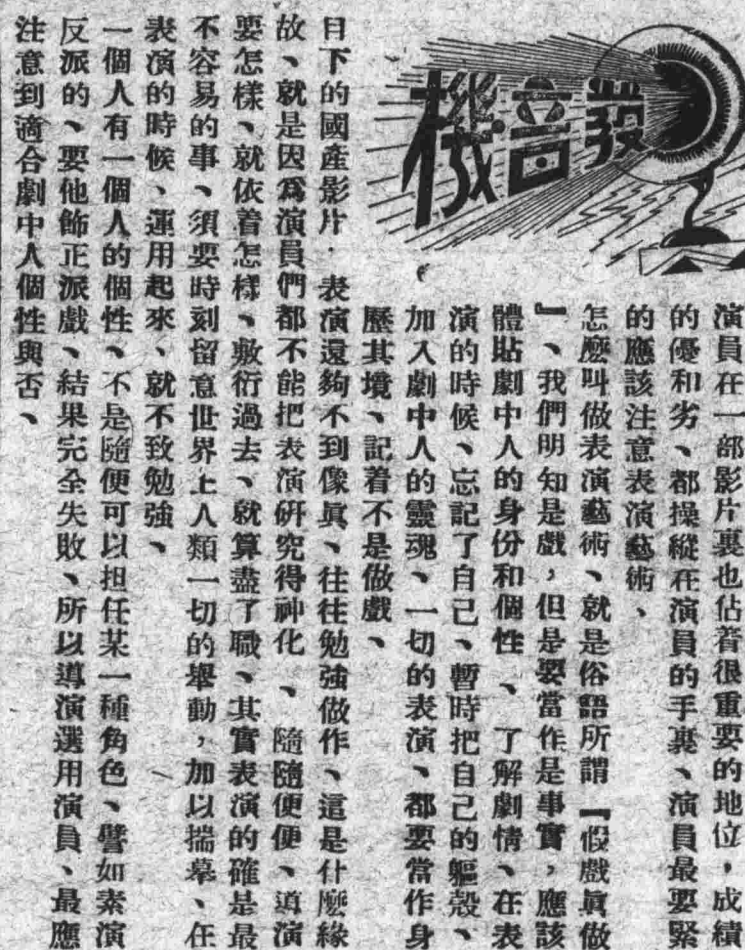 發音機
演員在一部影片裏也佔着很重要的地位，成績
的優和劣、都操縱在演員的手裏、演員最要緊
的應該注意表演藝術、
怎麽叫做表演藝術、就是俗語所謂『假戲眞做
』、我們明知是戲，但是要當作是事實，應該
體貼劇中人的身份和個性、了解劇情、在表
演的時候、忘記了自己、暫時把自己的軀殼、
加入劇中人的靈魂、一切的表演、都要當作身
歷其境、記着不是做戲、
目下的國產影片．表演還夠不到像眞、往往勉強做作、這是什麽緣
故、就是因爲演員們都不能把表演研究得神化、隨隨便便、導演
要怎樣、就依着怎樣、敷衍過去、就算盡了職、其實表演的確是最
不容易的事、須要時刻留意世界上人類一切的舉動，加以揣摹、在
表演的時候、運用起來、就不致勉強、
一個人有一個人的個性、不是隨便可以担任某一種角色、譬如素演
反派的、要他飾正派戲、結果完全失敗、所以導演選用演員、最應
注意到適合劇中人個性與否、